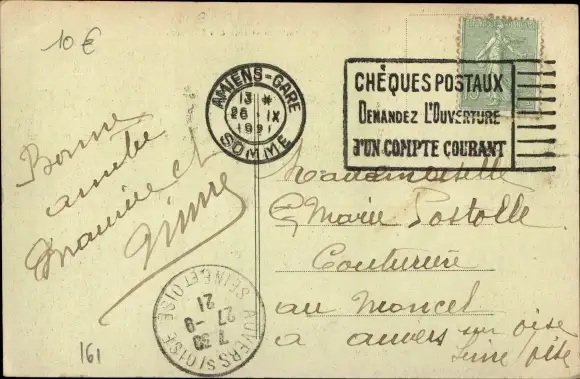 10 €
AMIENS-GARE
13 *
26 IX
1921
SOMME
CHÈQUES POSTAUX
DEMANDEZ L'OUVERTURE
D'UN COMPTE COURANT
Bonne
arrivée
Maurice et
Mademoiselle
Marie Postolle
Couturière
au Moncel
a auvers sur oise
Seine Oise
AUVERS S/OISE
7 30
27-9
21
SEINE ET OISE
161